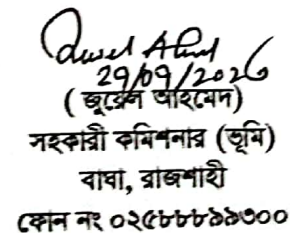 29/09/2026
(জুয়েল আহমেদ)
সহকারী কমিশনার (ভূমি)
বাঘা, রাজশাহী
ফোন নং ০২৫৮৮৮৯৯৩০০